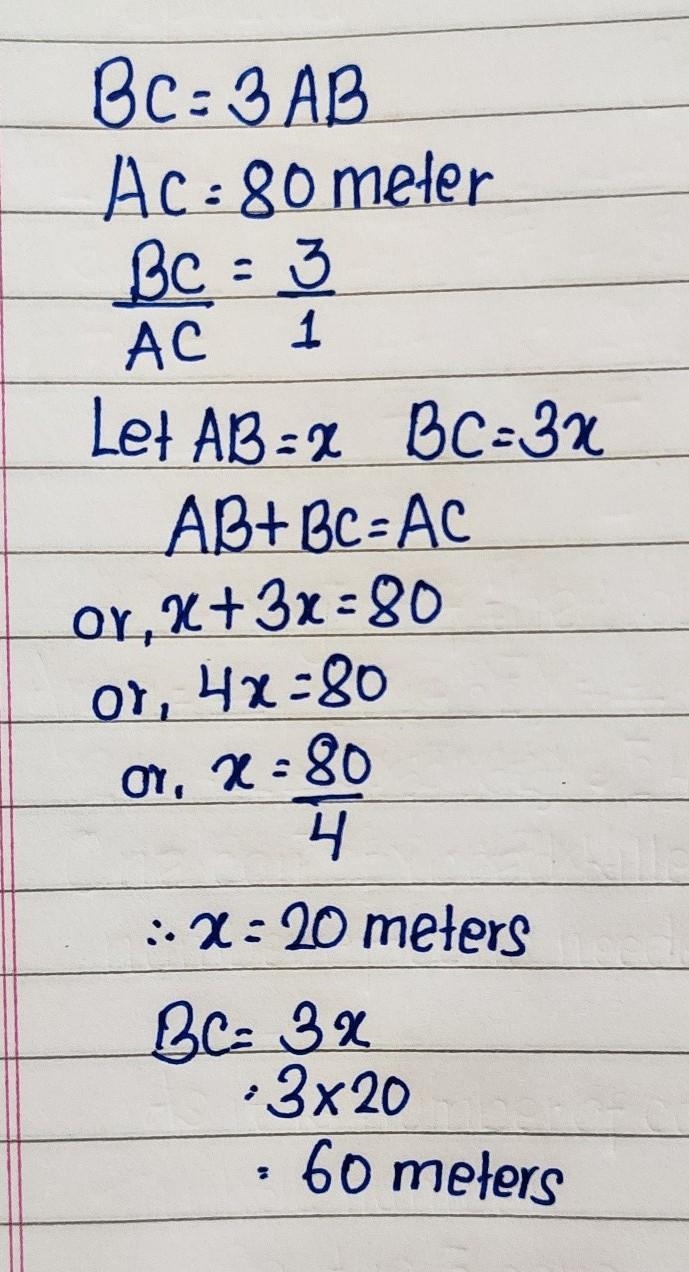 BC = 3 AB
AC = 80 meter
BC/AC = 3/1
Let AB = x   BC = 3x
AB + BC = AC
or, x + 3x = 80
or, 4x = 80
or, x = 80/4
∴ x = 20 meters
BC = 3x
= 3 × 20
= 60 meters